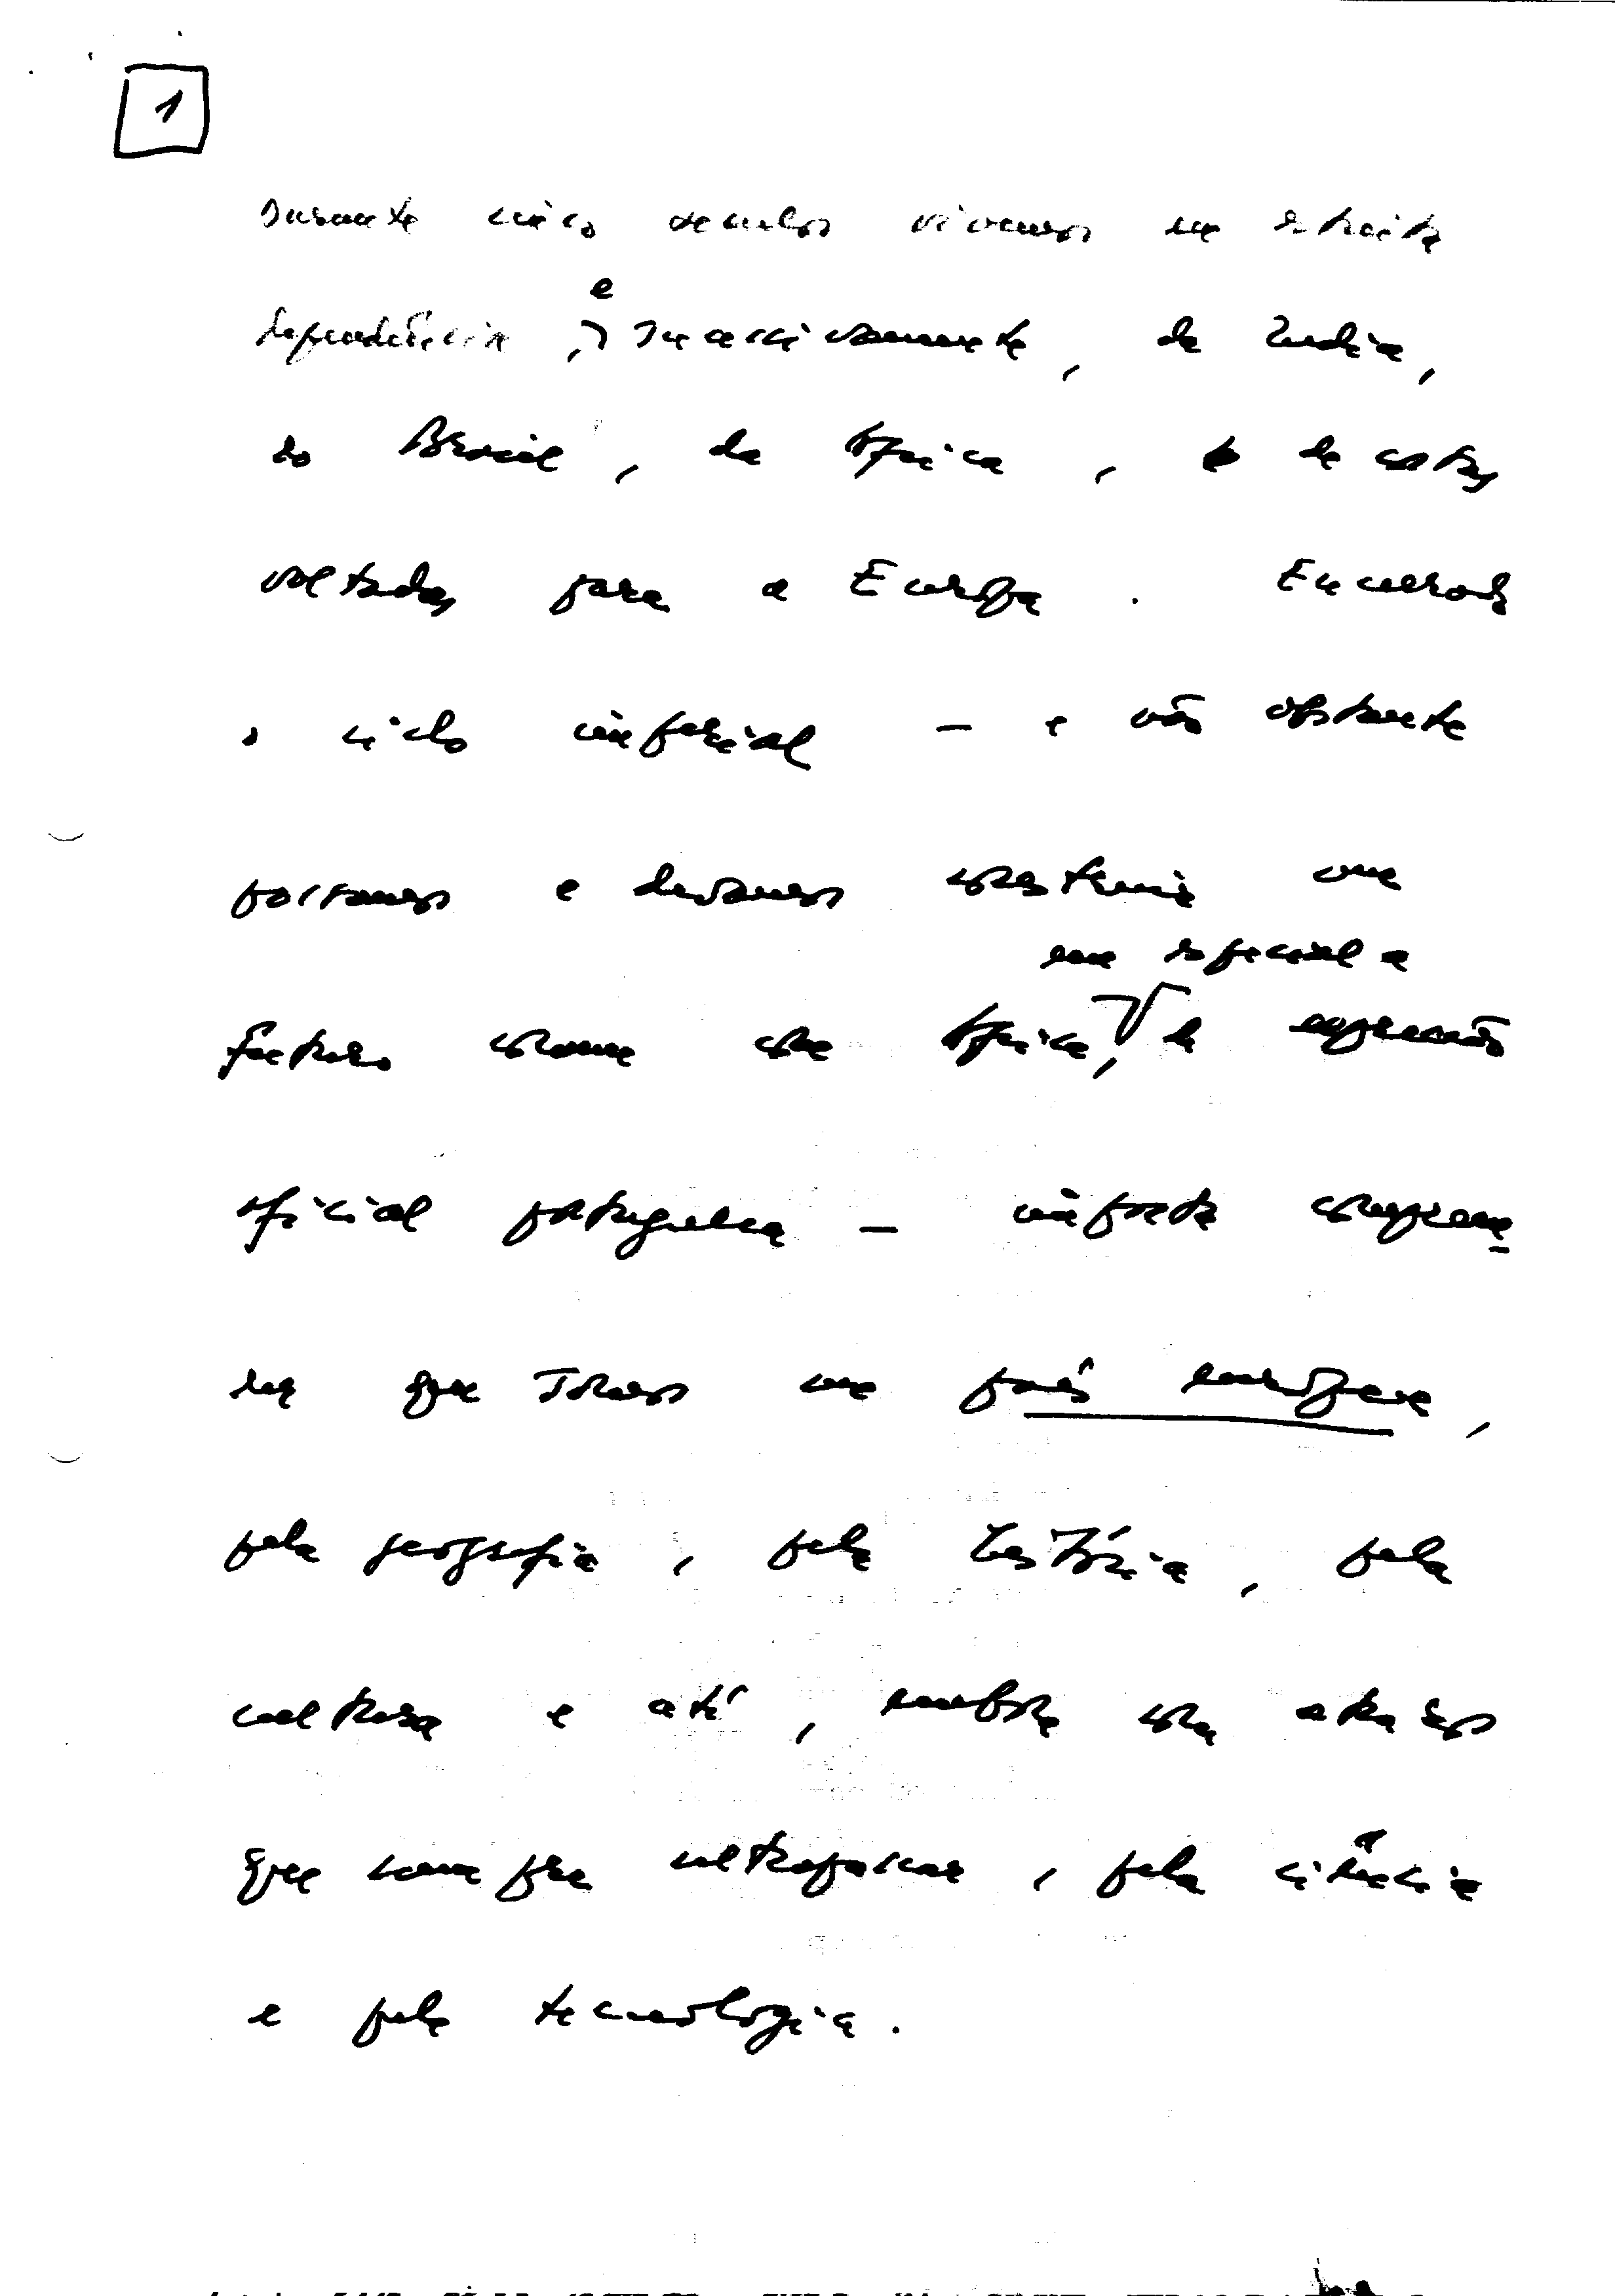 1
Durante cinco séculos vivemos em estreita
dependência, e sucessivamente, da Índia,
do Brasil, da África, de costas
voltadas para a Europa. Encerrado
o ciclo imperial — e não obstante
possamos e devamos construir um
futuro comum com África, em especial a de expressão
oficial portuguesa — importa compreen-
der que somos um país europeu,
pela geografia, pela história, pela
cultura e até, embora com atrasos
que cumpre ultrapassar, pela ciência
e pela tecnologia.